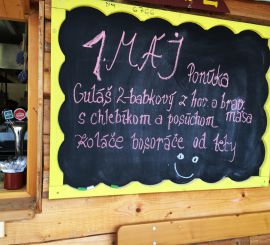 1. MÁJ
Ponúka
Guláš 2-babkový z hov. a brav.
mäsa
s chlebíkom a posúchom
koláče bosoráče od tety